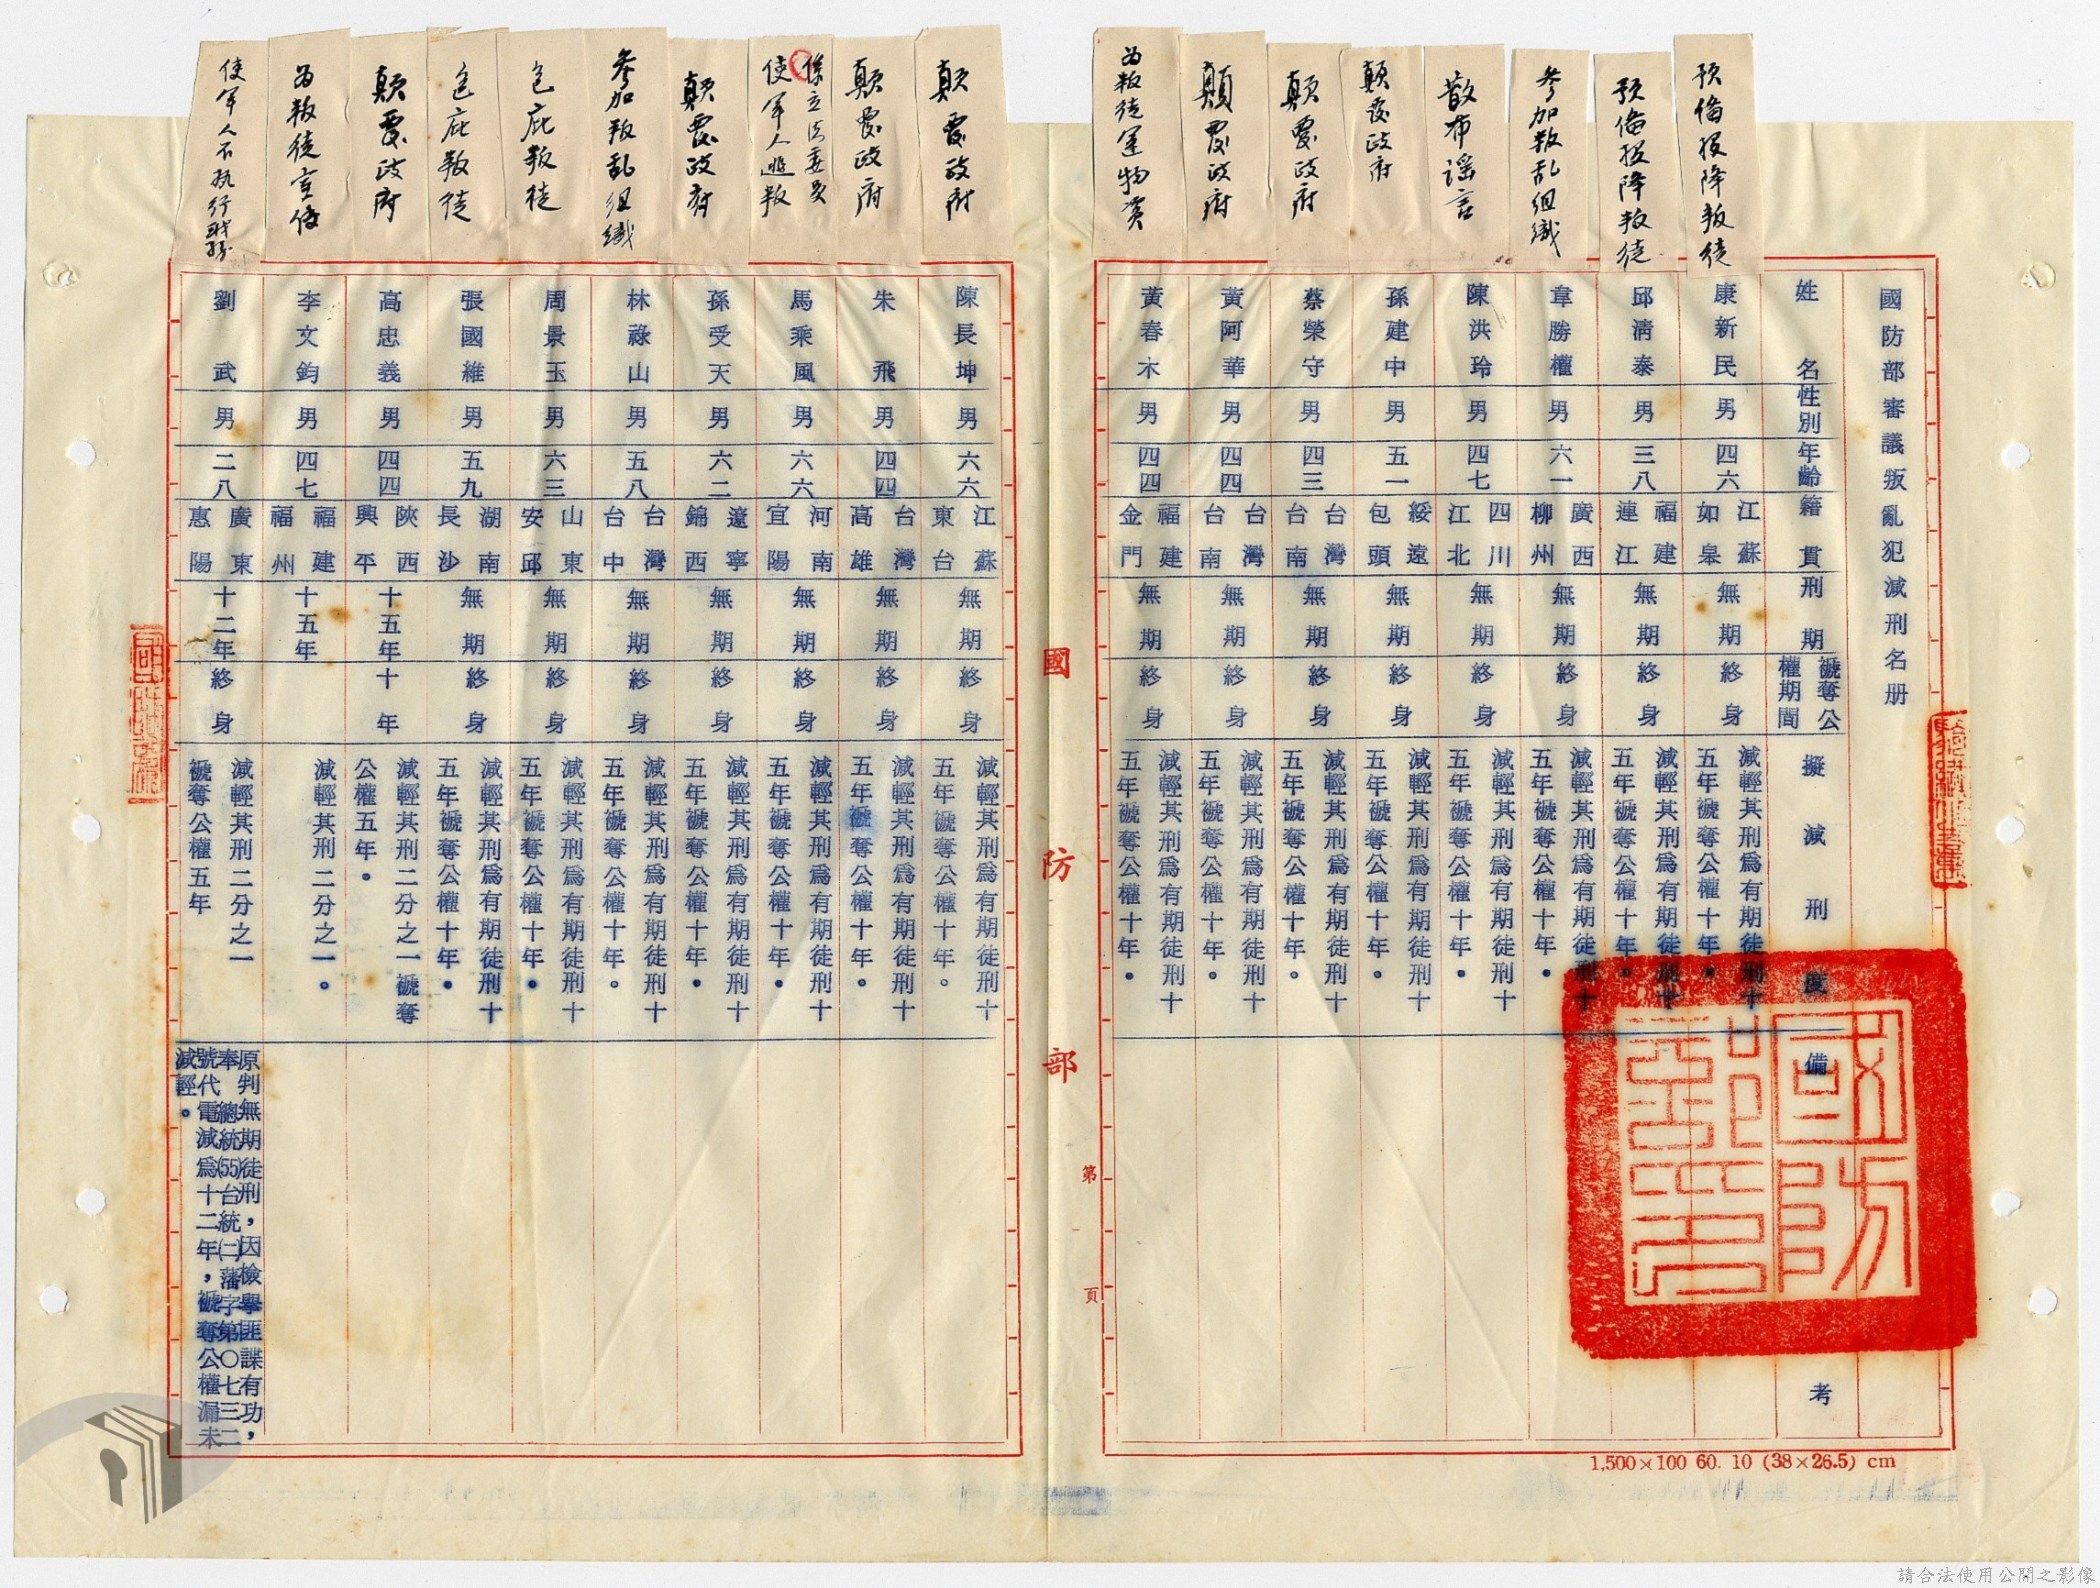 國防部審議叛亂犯減刑名册
姓名
性別
年齡
籍貫
刑期
褫奪公權期間
擬減刑度
備考
預備投降叛徒
康新民
男
四六
江蘇如皋
無期
終身
減輕其刑為有期徒刑十五年褫奪公權十年。
預備投降叛徒
邱清泰
男
三八
福建連江
無期
終身
減輕其刑為有期徒刑十五年褫奪公權十年。
參加叛乱組織
韋勝權
男
六一
廣西柳州
無期
終身
減輕其刑為有期徒刑十五年褫奪公權十年。
散布謠言
陳洪玲
男
四七
四川江北
無期
終身
減輕其刑為有期徒刑十五年褫奪公權十年。
顛覆政府
孫建中
男
五一
綏遠包頭
無期
終身
減輕其刑為有期徒刑十五年褫奪公權十年。
顛覆政府
蔡榮守
男
四三
台灣台南
無期
終身
減輕其刑為有期徒刑十五年褫奪公權十年。
顛覆政府
黃阿華
男
四四
台灣台南
無期
終身
減輕其刑為有期徒刑十五年褫奪公權十年。
為叛徒運物资
黃春木
男
四四
福建金門
無期
終身
減輕其刑為有期徒刑十五年褫奪公權十年。
國防部
第 頁
顛覆政府
陳長坤
男
六六
江蘇東台
無期
終身
減輕其刑為有期徒刑十五年褫奪公權十年。
顛覆政府
朱飛
男
四四
台灣高雄
無期
終身
減輕其刑為有期徒刑十五年褫奪公權十年。
係立法委員
使軍人逃叛
馬乘風
男
六六
河南宜陽
無期
終身
減輕其刑為有期徒刑十五年褫奪公權十年。
顛覆政府
孫受天
男
六二
遼寧錦西
無期
終身
減輕其刑為有期徒刑十五年褫奪公權十年。
參加叛乱組織
林祿山
男
五八
台灣台中
無期
終身
減輕其刑為有期徒刑十五年褫奪公權十年。
包庇叛徒
周景玉
男
六三
山東安邱
無期
終身
減輕其刑為有期徒刑十五年褫奪公權十年。
包庇叛徒
張國維
男
五九
湖南長沙
無期
終身
減輕其刑為有期徒刑十五年褫奪公權十年。
顛覆政府
高忠義
男
四四
陝西興平
十五年
十年
減輕其刑二分之一褫奪公權五年。
為叛徒宣傳
李文鈞
男
四七
福建福州
十五年
減輕其刑二分之一。
使軍人不执行職務
劉武
男
二八
廣東惠陽
十二年
終身
減輕其刑二分之一
褫奪公權五年
原判無期徒刑，因檢舉匪諜有功，
奉 總統(55)台統(二)藩字第〇七三二
號代電減為十二年，褫奪公權漏未
減輕。
國防部印
1,500×100 60. 10 (38×26.5) cm
請合法使用公開之影像